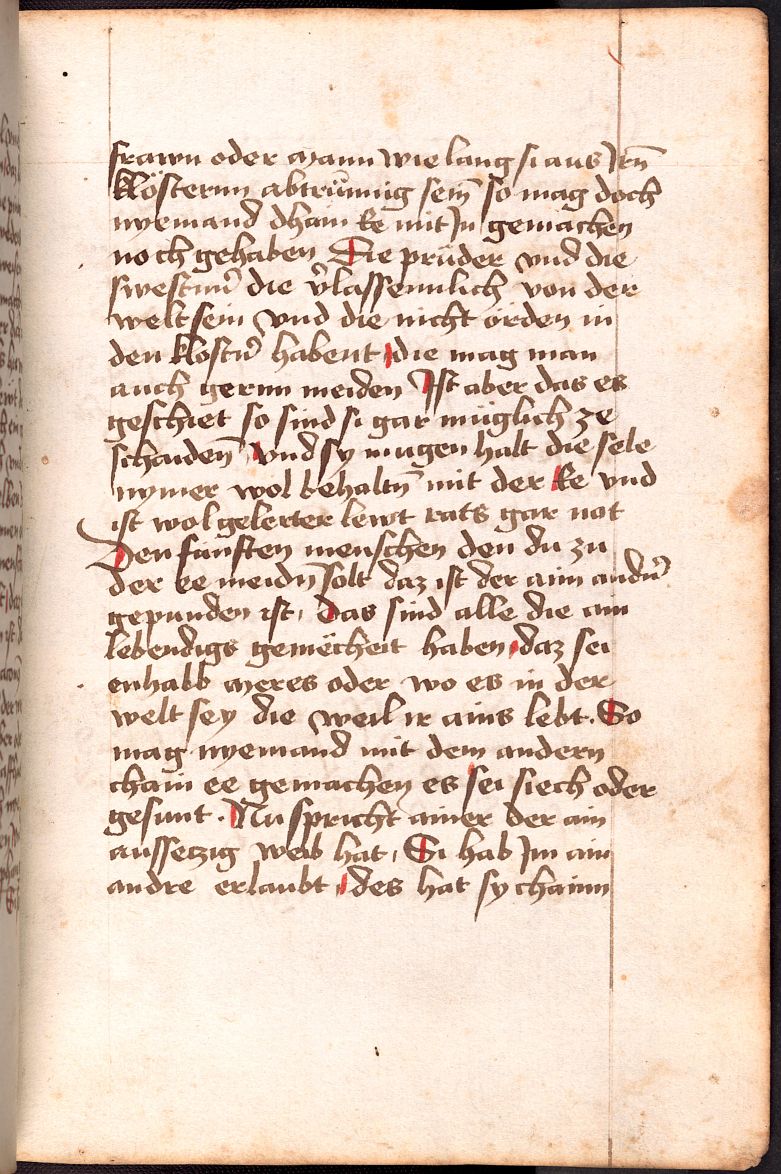 frawn oder mann wie lang si aus Jrn̄
klösternn abtrünnig sein̄ so mag doch
nyemand dhain Ee mit Jn gemachen
noch gehaben Die prüder vnd die
swestn̉ die v̉lassennlich von der
welt sein vnd die nicht örden in
den klostn̉ habent die mag man
auch gernn meiden Jst aber das es
geschiet so sind si gar müglich ze
schaiden̄ vnd sy mugen halt die sele
nymer wol behaltn̄ mit der Ee vnd
ist wol gelerter lewt rats gar not
Den fünften menschen den du zu
der ee meidn̄ solt daz ist der aim andn̉
gepunden ist, Das sind alle die ain
lebendigs gemëcheit haben daz sei
enhalb meres oder wo es in der
welt sey die weil ir ains lebt. So
mag nyemand mit dem andern
chain ee gemachen es sei siech oder
gesunt. Nu spricht ainer der ain
aussetzig weib hat, Si hab Jm ain
andre erlaubt des hat sy chainn